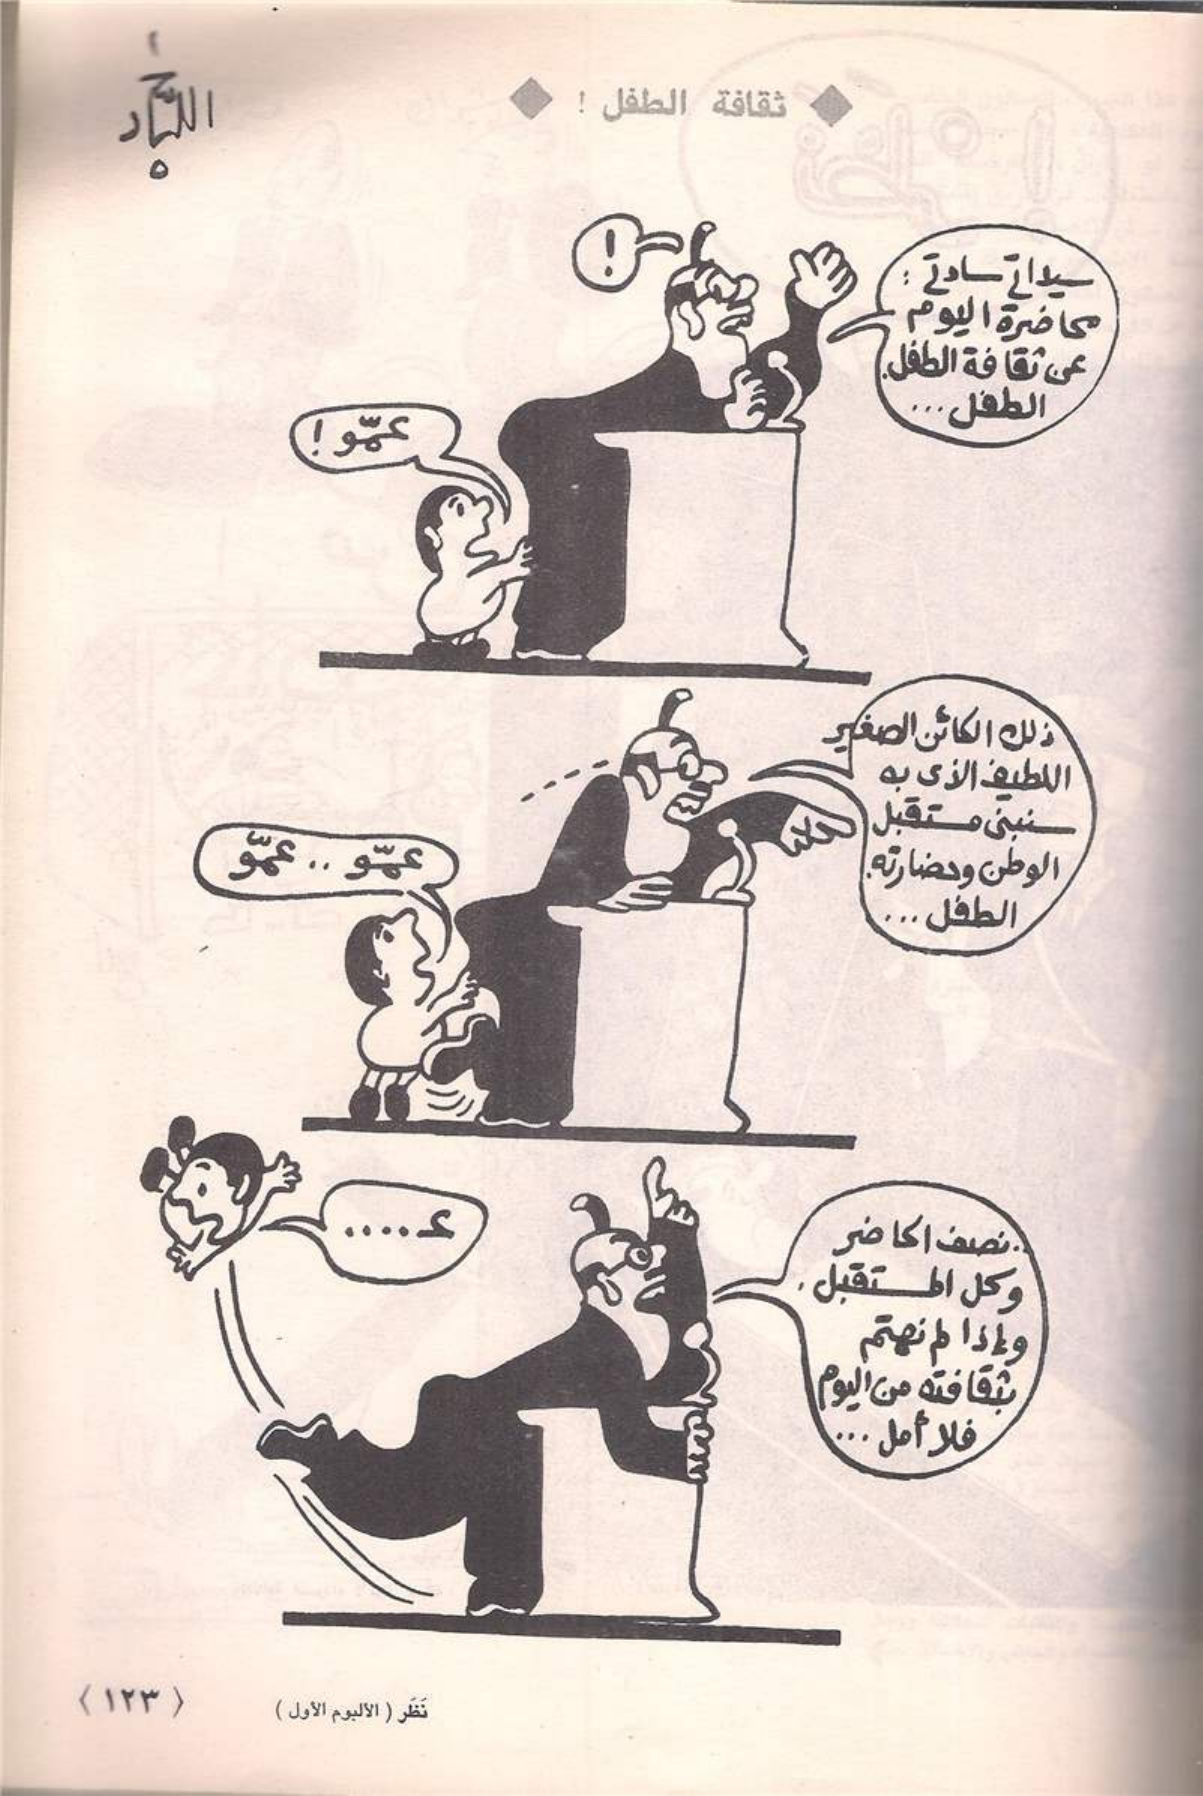 اللبّاد
ثقافة الطفل !
!
سيداتي سادتي :
محاضرة اليوم
عن ثقافة الطفل.
الطفل...
عمّو !
ذلك الكائن الصغير
اللطيف الذى به
سنبنى مستقبل
الوطن وحضارته.
الطفل...
عمّو .. عمّو
..نصف الحاضر
وكل المستقبل.
وإذا لم نهتم
بثقافته من اليوم
فلا أمل...
عـ.....
نَظَر ( الألبوم الأول )
﴿ ١٢٣ ﴾